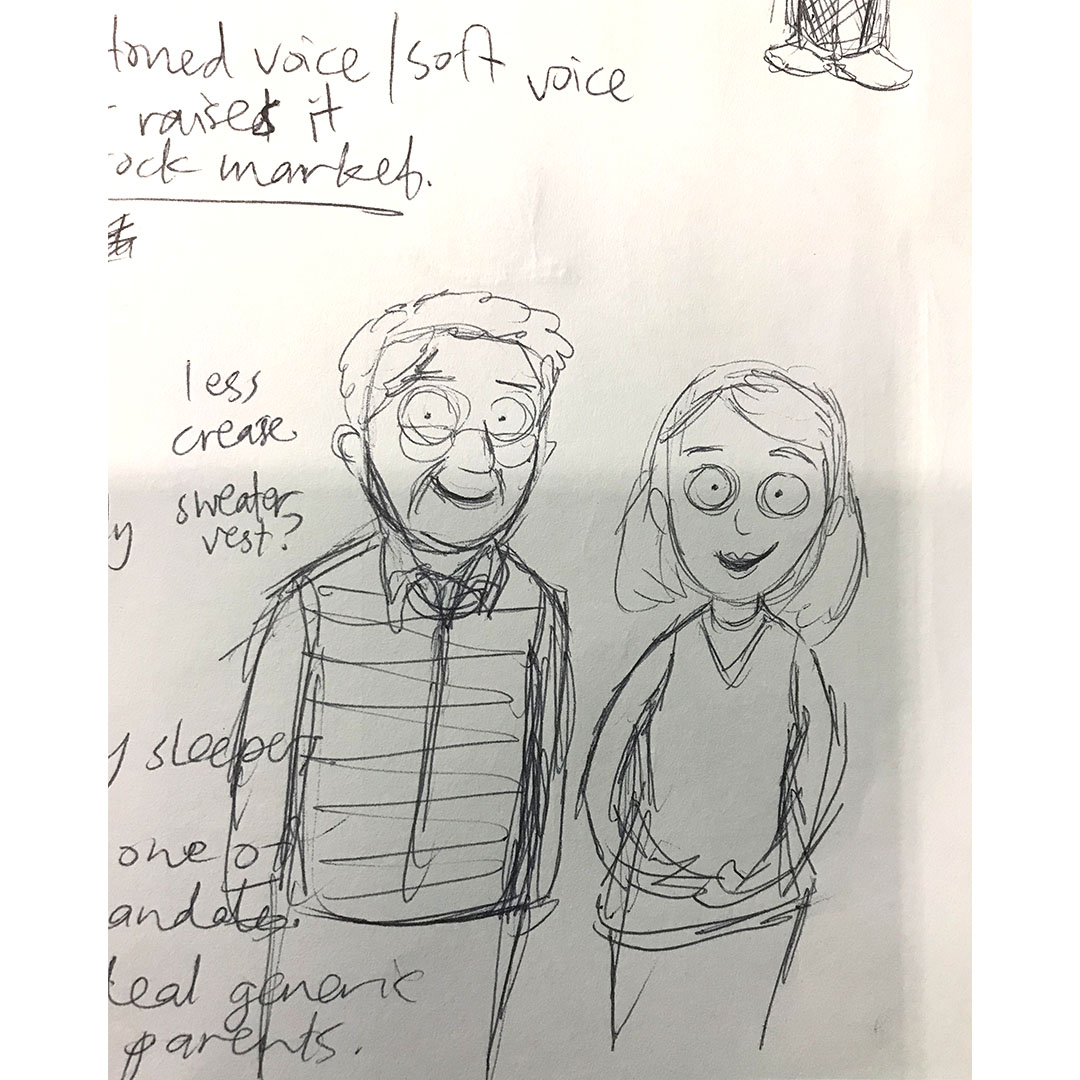 toned voice / soft voice
raises it
ock market.
less
crease
sweater
vest?
y
y sleeper
one of
andate.
eal generic
parents.